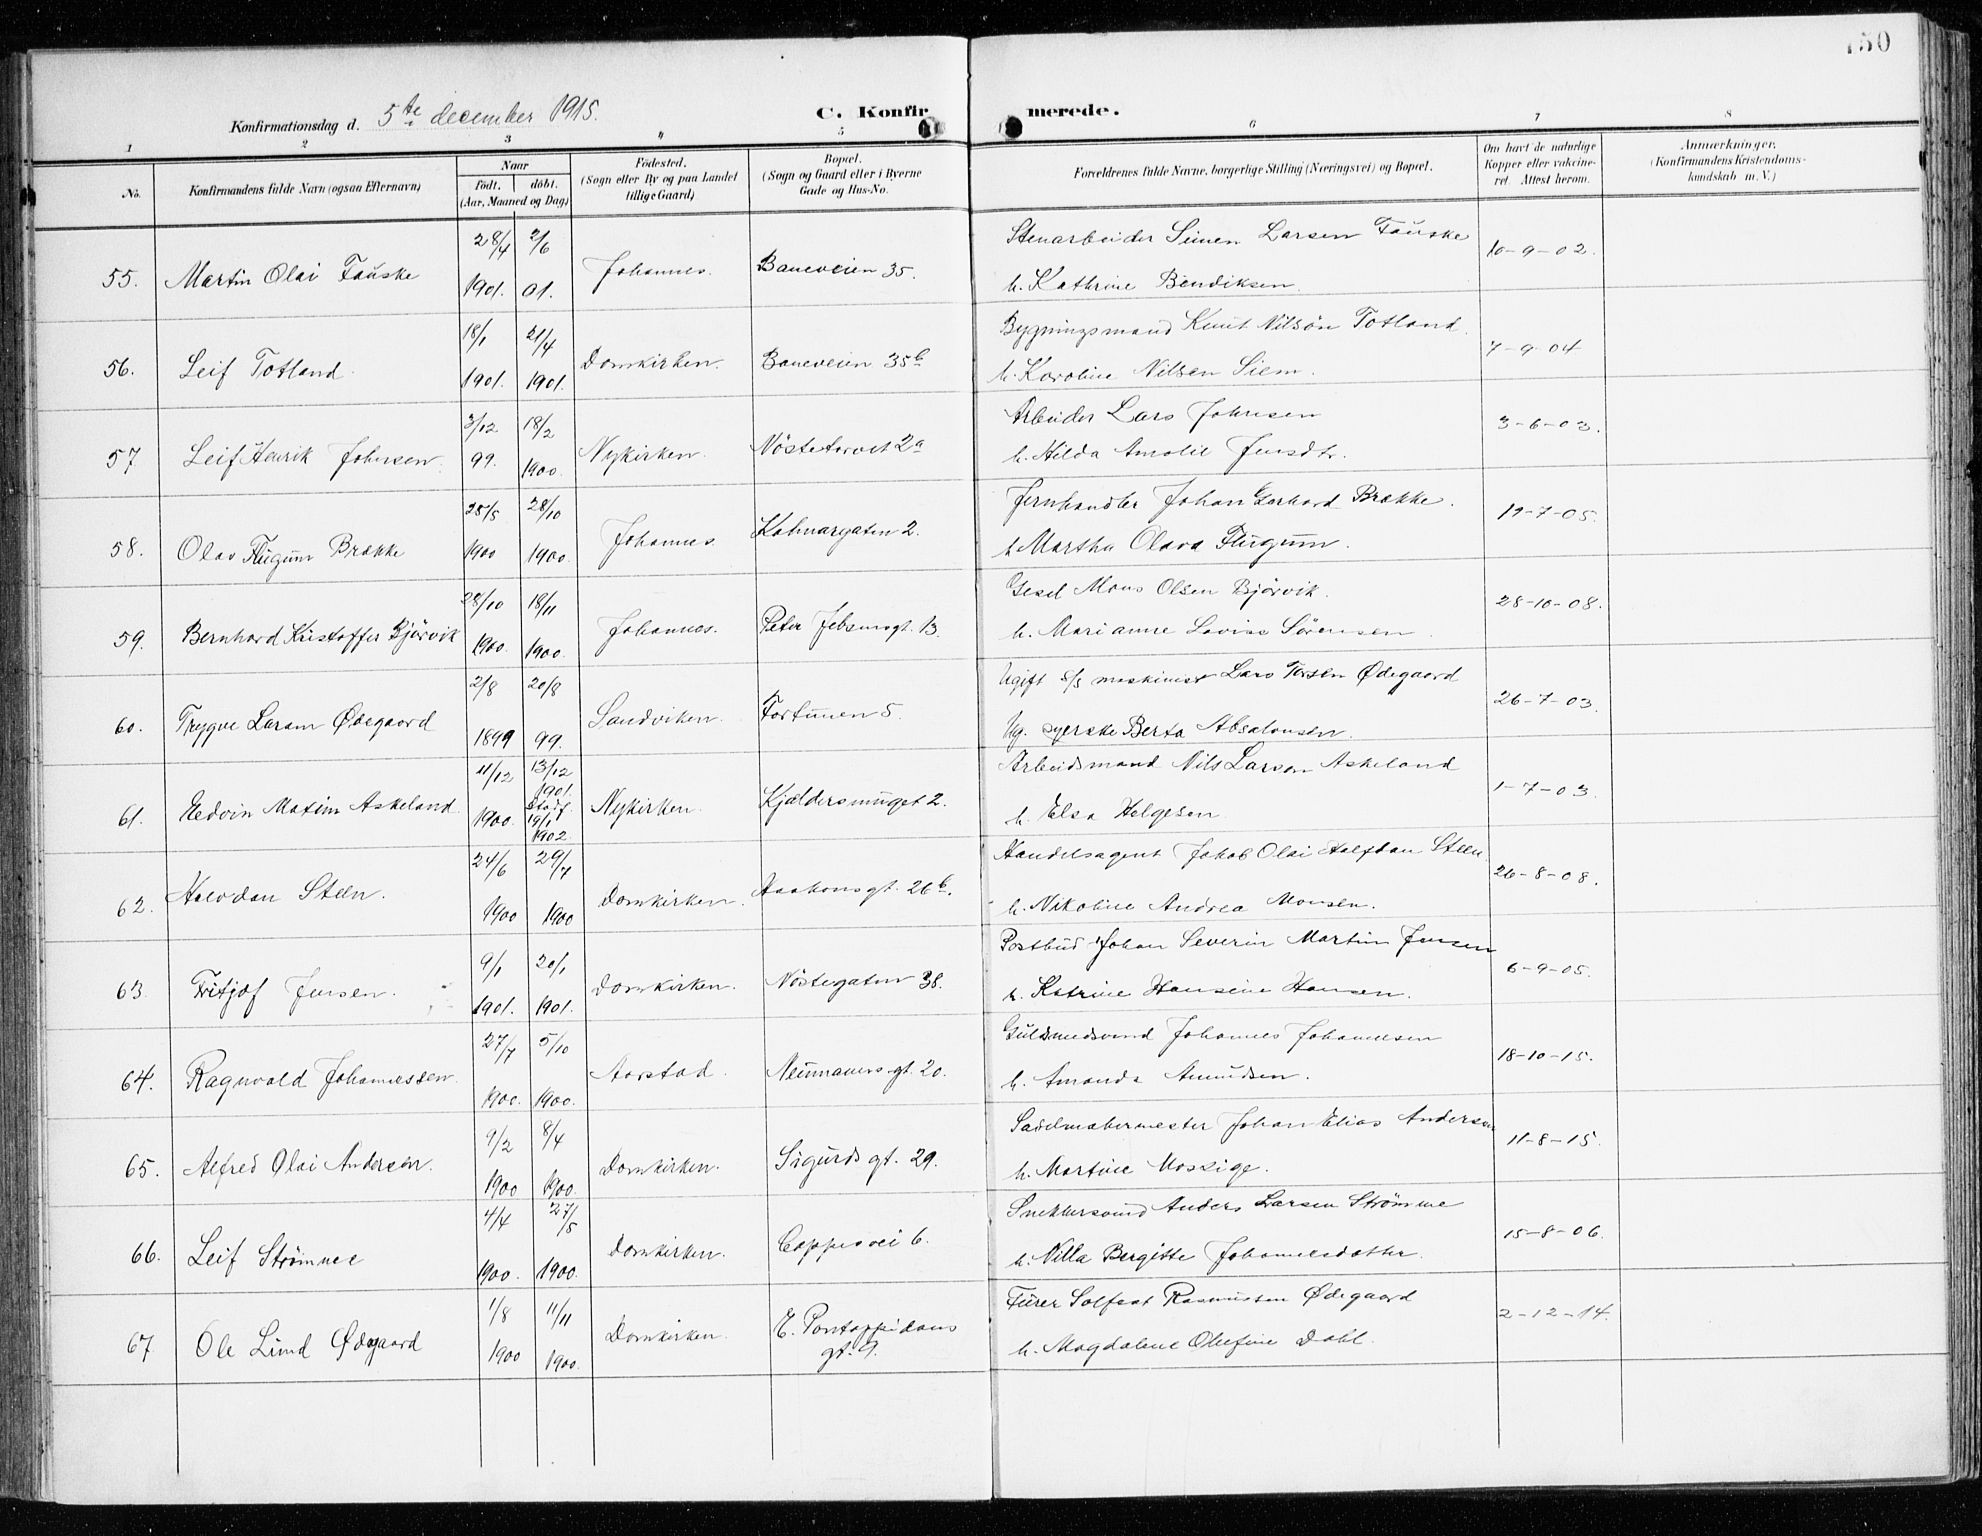 150
Konfirmationsdag d. 5te december 1915.
C. Konfirmerede.
1 2 3 4 5 6 7 8
No. Konfirmandens fulde Navn (ogsaa Efternavn) Naar Født. døbt. (Aar, Maaned og Dag) Fødested. (Sogn eller By og paa Landet tillige Gaard) Bopæl. (Sogn og Gaard eller i Byerne Gade og Hus-No. Forældrenes fulde Navne, borgerlige Stilling (Næringsvei) og Bopæl. Om havt de naturlige Kopper eller vakcineret. Attest herom. Anmærkninger. (Konfirmandens Kristendomskundskab m. V.)
28/4 2/6 Stenarbeider Simen Larsen Fauske
55. Martin Olai Fauske 1901. 01. Johannes. Baneveien 35. 10-9-02.
h. Kathrine Bendiksen.
18/1 21/4 Bygningsmand Knut Nilsøn Totland.
56. Leif Totland. 1901. 1901. Domkirken. Baneveien 35b 7-9-04
h. Karoline Nilsen Siem.
3/12 18/2 Arbeider Lars Johnsen
57 Leif Henrik Johnsen. 99. 1900. Nykirken. Nöstetorvet 2a 3-6-03.
h. Hilda Amalie Jensdtr.
25/5 28/10 Jernhandler Johan Gerhard Brække.
58. Olav Flugum Brække 1900 1900. Johannes Kalvargaten 2. 19-7-05.
h. Martha Olava Flugum.
28/10 18/11 Gesel Mons Olsen Bjørvik.
59. Bernhard Kristoffer Bjørvik 1900. 1900. Johannes. Peter Jebsensgt. 13. 28-10-08.
h. Marianne Lovise Sørensen.
2/8 20/8 Ugift s/s maskinist Lars Larsen Ødegaard
60. Trygve Larsen Ødegaard 1899 99. Sandviken. Fortunen 5. 26-7-03.
Ug. syerske Berta Absalonsen.
11/12 13/12 1901. Arbeidsmand Nils Larsen Askeland
61. Hedvin Maxim Askeland. 1900. Stadf. 19/1 1902. Nykirken. Kjældersmuget 2. 1-7-03.
h. Elsa Helgesen.
24/6 29/7 Handelsagent Jakob Olai Halfdan Steen.
62. Halvdan Steen. 1900 1900 Domkirken. Haakonsgt. 26b. 26-8-08.
h. Nikoline Andrea Monsen.
9/1 20/1 Postbud Johan Severin Martin Jensen
63. Fritjof Jensen. 1901. 1901. Domkirken. Nöstegaten 38. 6-9-05.
h. Katrine Hansine Hansen.
27/7 5/10 Guldsmedsvend Johannes Johannesen
64. Ragnvald Johannessen. 1900. 1900. Aarstad. Neumannsgt. 20. 18-10-15.
h. Amanda Amundsen.
9/2 8/4 Sadelmakermester Johan Elias Andersen
65. Alfred Olai Andersen. 1900 1900. Domkirken. Sigurdsgt. 29. 11-8-15.
h. Martine Mossige.
4/4 27/5 Snekkersvend Anders Larsen Strömme
66. Leif Strømme 1900. 1900. Domkirken. Cappesvei 6. 15-8-06.
h. Villa Bergitte Johannesdatter.
1/8 11/11 Fürer Solfest Rasmussen Ødegaard
67. Ole Lind Ødegaard 1900 1900. Domkirken. E. Pontoppidans gt. 9. 2-12-14.
h. Magdalene Olufine Dahl.